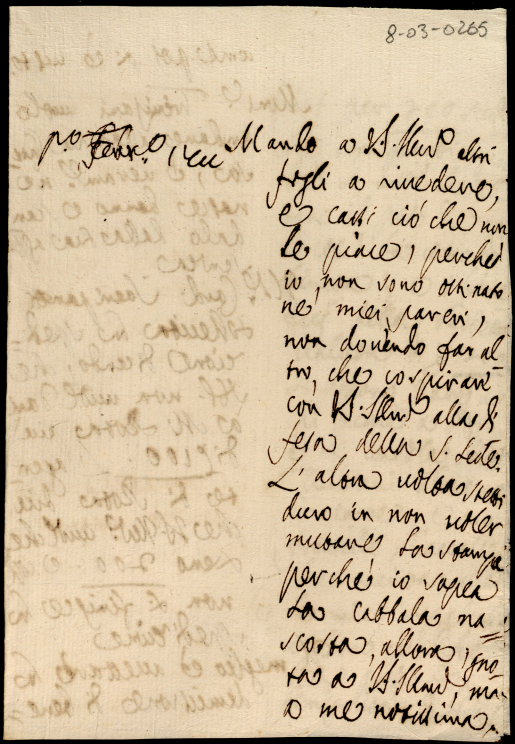 8-03-0265
p.o Febr.o 1711
Mando a V.S. Illma altri
fogli a rivedere,
e cassi ciò che non
le piace, perché
io non sono ostinato
ne' miei pareri,
non dovendo far al
tro, che cospirare
con V.S. Illma alla di
fesa della S. Sede.
L'altra volta stetti
duro in non voler
mutare la stampa
perché io sapea
la cabbala na=
scosta, allora igno=
ta a V.S. Illma, ma
a me notissima.